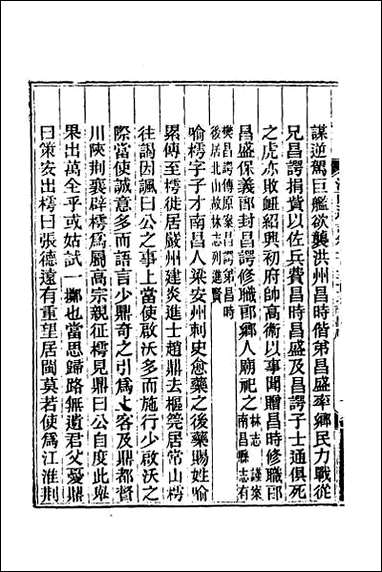 謀逆駕巨艦欲襲洪州昌時偕弟昌盛率鄉民力戰從
兄昌諤捐貲以佐兵費昌時昌盛及昌諤子士通俱死
之虎亦敗衄紹興初府帥高衛以事聞贈昌時修職郎
昌盛保義郎封昌諤修職郎鄉人廟祀之林志 謹案南昌縣志有
樊昌諤傳原案昌諤弟昌時後居北山故林志列進賢
喻樗字子才南昌人梁安州刺史愈藥之後藥賜姓喻
累傳至樗徙居嚴州建炎進士趙鼎去樞筦居常山樗
往謁因諷曰公之事上當使啟沃多而施行少啟沃之
際當使誠意多而語言少鼎奇之引爲上客及鼎都督
川陝荆襄辟樗爲屬高宗親征樗見鼎曰公自度此舉
果出萬全乎或姑試一擲也當思歸路無遺君父憂鼎
曰策安出樗曰張德遠有重望居閩莫若使爲江淮荆